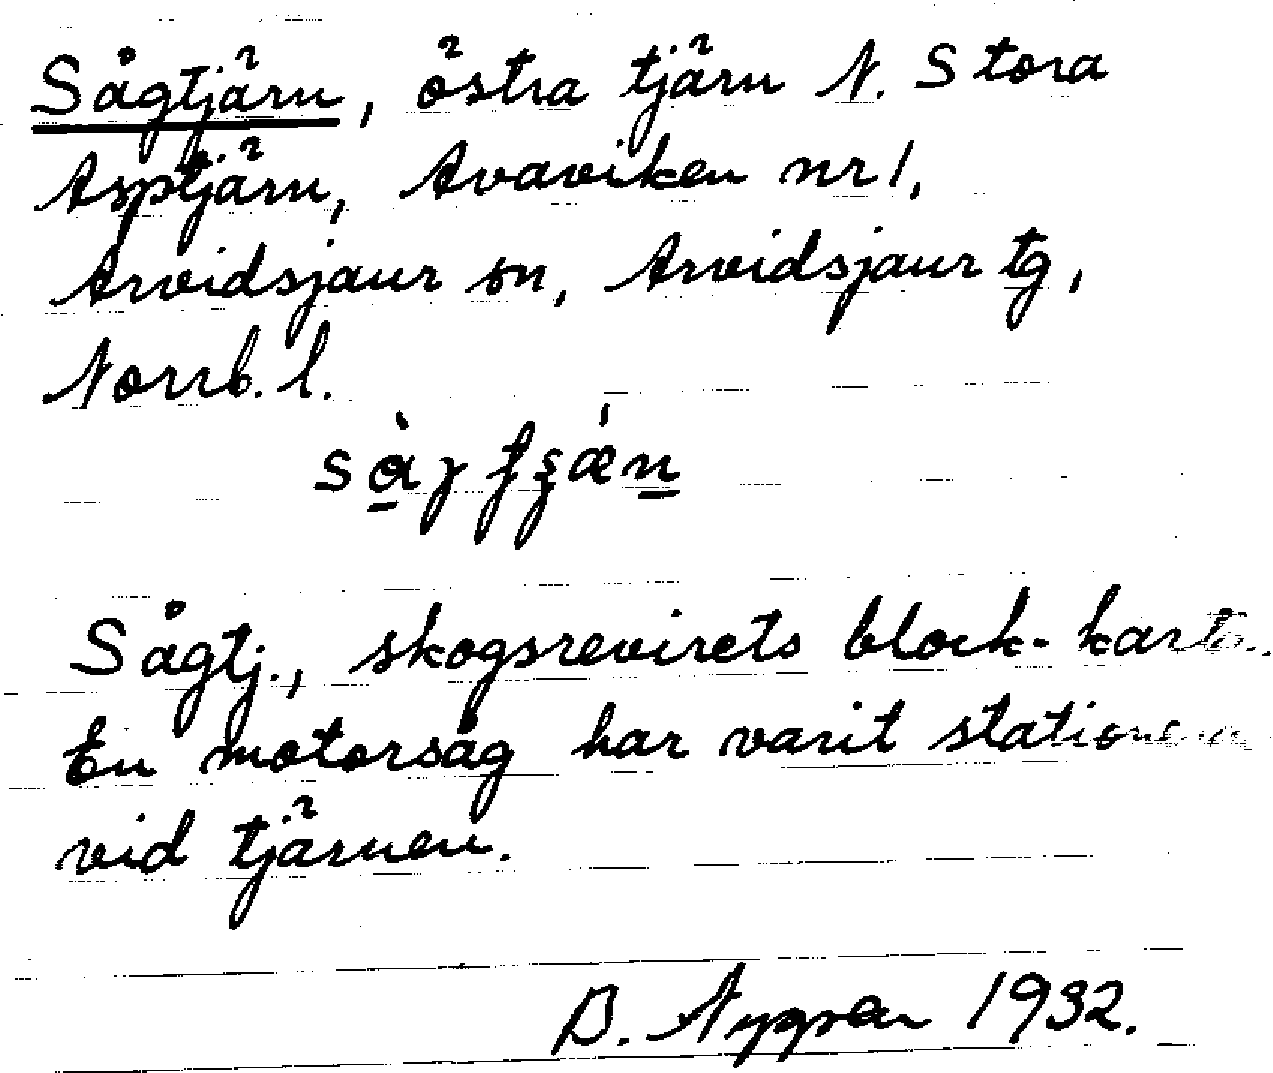 Sågtjärn, östra tjärn N. Stora
Asptjärn, Avaviken nr 1,
Arvidsjaur sn, Arvidsjaur tg,
Norrb. l.
Sågtj., skogsrevirets block-karta.
En motorsåg har varit
vid tjärnen.
B. Nygren 1932.